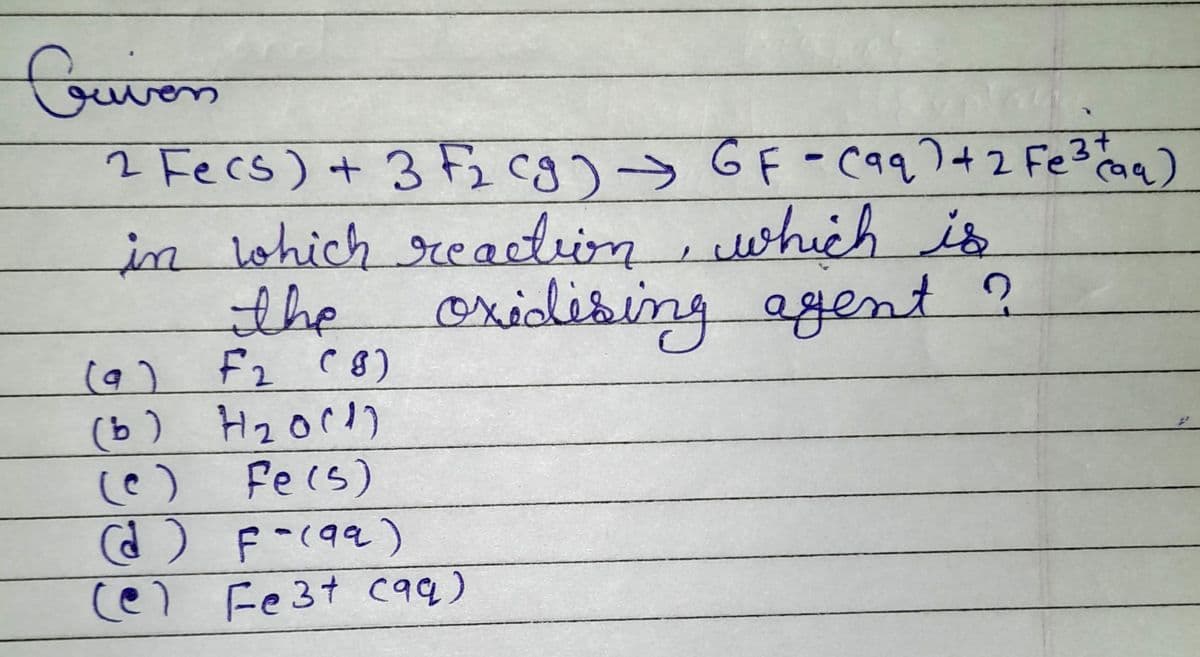 Given
2 Fe(s) + 3 F2 (g) → 6F - (aq) + 2 Fe3+ (aq)
in which reaction, which is
the oxidising agent ?
(a) F2 (g)
(b) H2O(l)
(c) Fe(s)
(d) F-(aq)
(e) Fe3+ (aq)